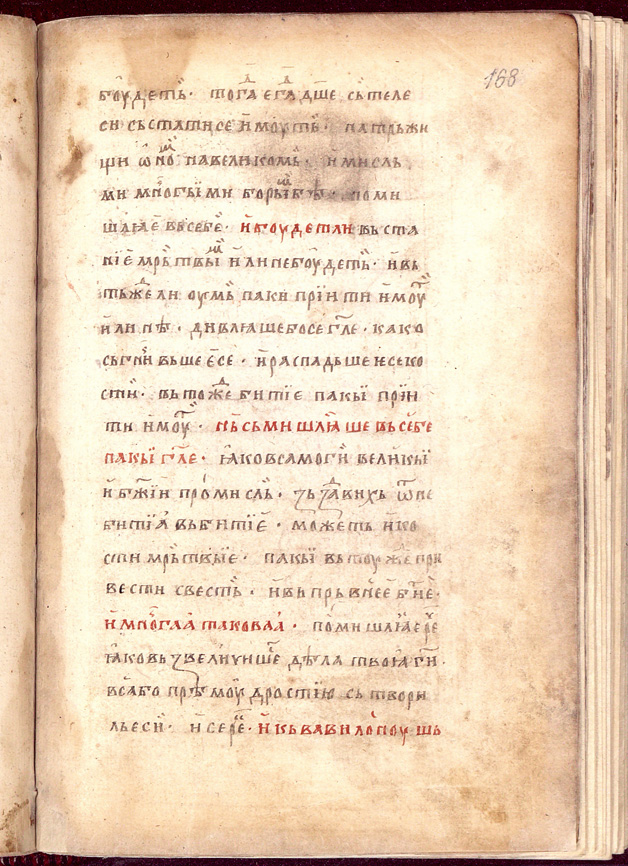 168
боудеть · тога егда дше сьтеле
си сьстати се имоуть · натрьжи
щи ѡно навеликомь · имисль
ми многыими борыи бѣ · поми
шлꙗе вьсебѣ · ибоудетли вьста
нїе мрьтвыи илинебоудеть · ивь
тьжели оумь паки прїити имоуть
или нѣ · дивлꙗшебосе гле · како
сьгнившеесе · ираспадьшеисе ко
сти · вьтожебитїе пакы прїи
ти имоуть · исьмишлꙗше вьсебе
пакы гле · ꙗковсамогы великыи
и бжїи промисль · ѿне
битїа вьбитїе · можеть ико
сти мрьтвые · пакы вьтоуже при
вести свесть · ивьпрьвнее бтїе ·
имногаа таковаа · помишлꙗе
ꙗковьзвеличише дѣла твоꙗ ги ·
всабо прѣмоудростїю сьтвори
льеси · исере · икьвавилопоушь